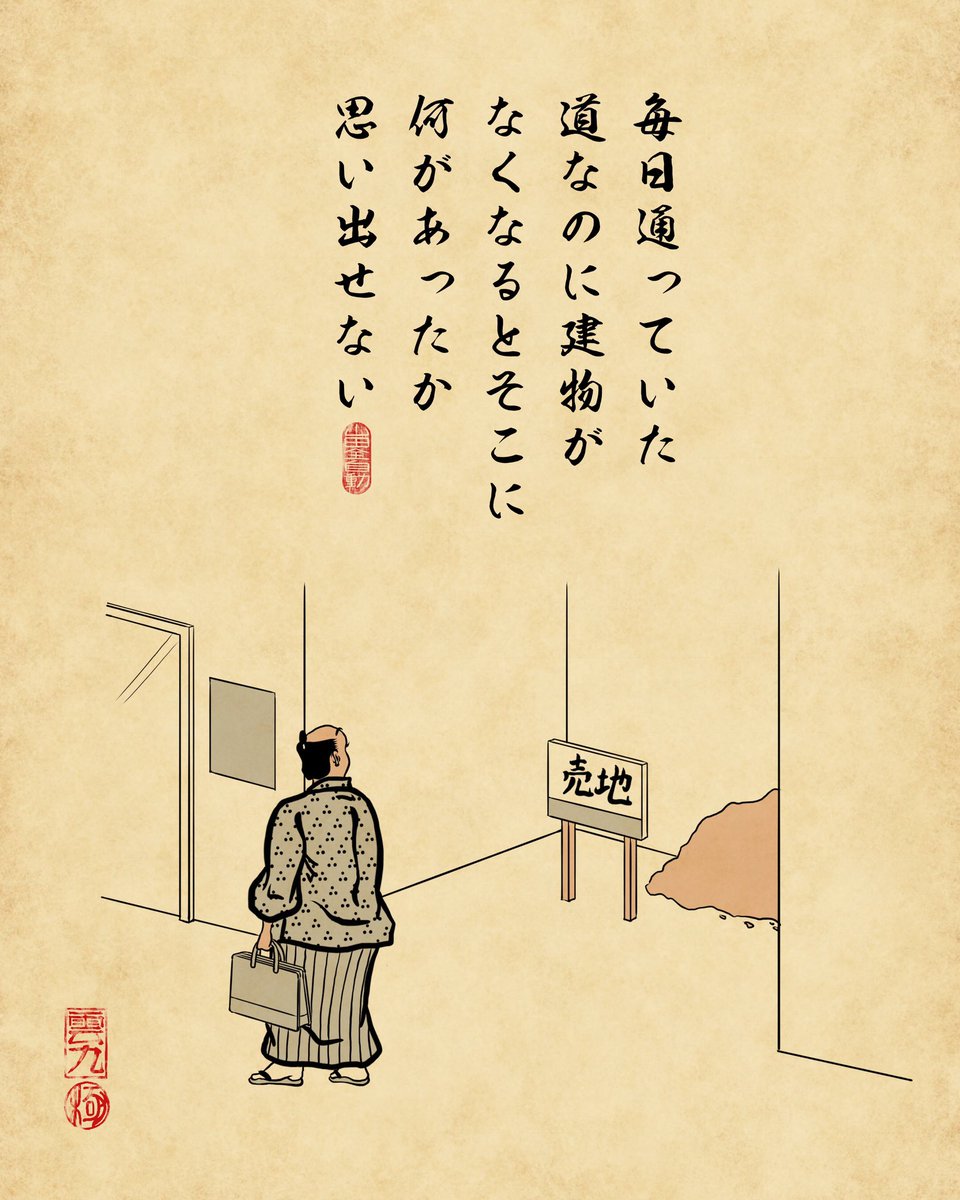 毎日通っていた
道なのに建物が
なくなるとそこに
何があったか
思い出せない
売地